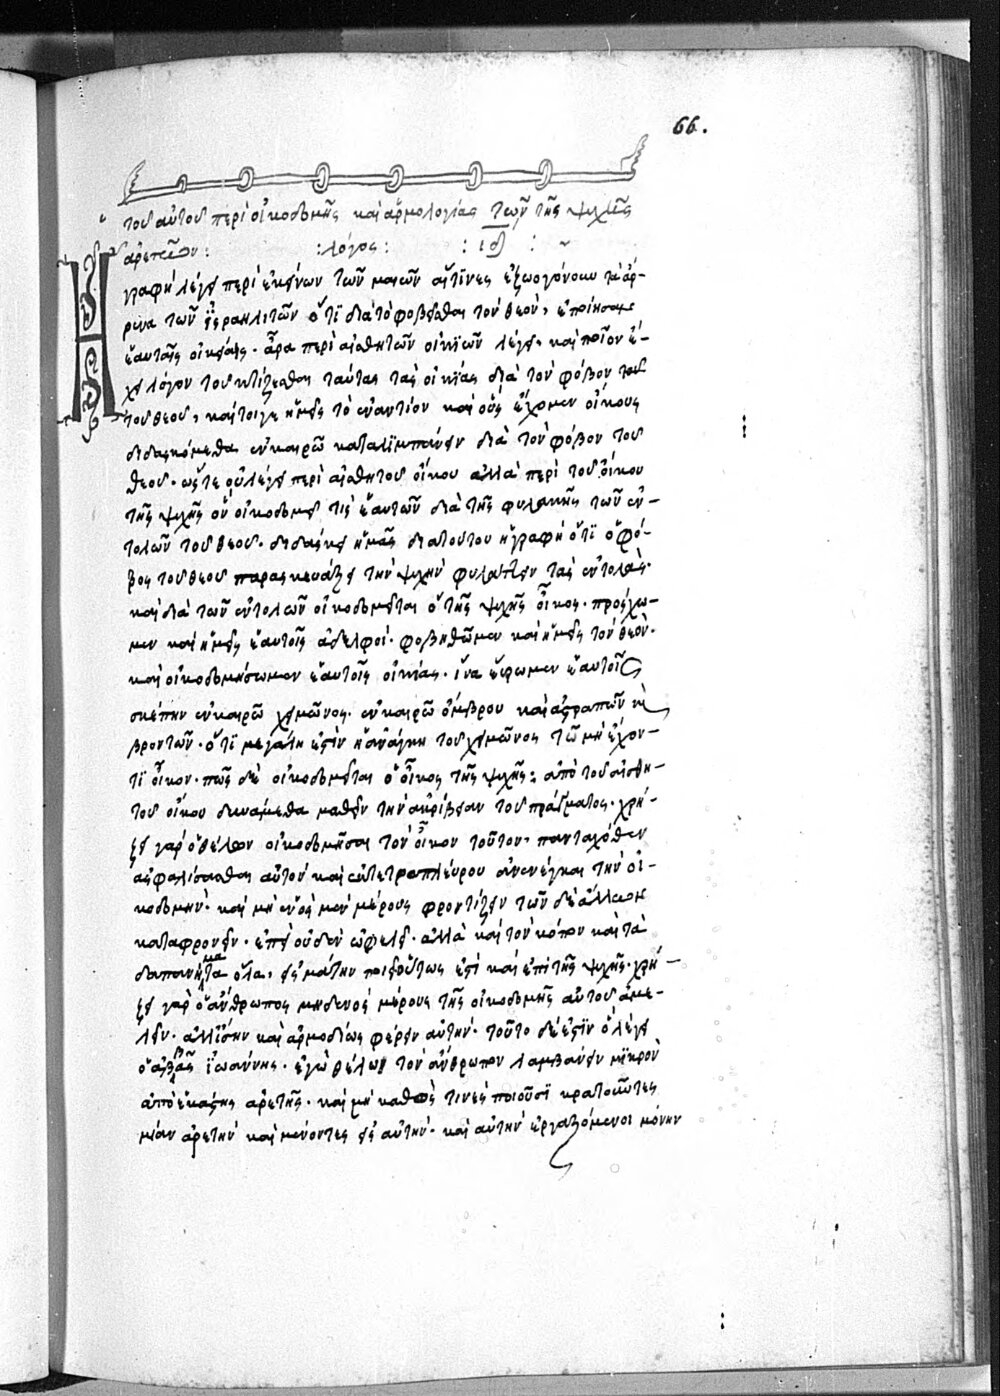 66.
τοῦ αὐτοῦ περὶ οἰκοδομῆς καὶ ἁρμολογίας τῶν τῆς ψυχῆς
ἀρετῶν : : λόγος : : ιδ :
Ἡ γραφὴ λέγει περὶ ἐκείνων τῶν μαιῶν αἵτϊνες ἐζωογόνουν τὰ ἄρ-
ρενα τῶν ἰσραηλιτῶν ὅτϊ διὰ τὸ φοβεῖσθαι τὸν θεὸν, ἐποίησαν
ἑαυταῖς οἰκίας. ἆρα περὶ αἰσθητῶν οἰκϊῶν λέγει, καὶ ποῖον ἔ-
χει λόγον τοῦ κτίζεσθαι ταύτας τὰς οἰκίας διὰ τὸν φόβον τοῦ
τοῦ θεοῦ, καίτοιγε ἡμεῖς τὸ ἐναντίον καὶ οὓς ἔχομεν οἴκους
διδασκόμεθα ἐν καιρῶ καταλϊμπάνειν διὰ τὸν φόβον τοῦ
θεοῦ. ὥστε οὐ λέγει περὶ αἰσθητοῦ οἴκου ἀλλὰ περὶ τοῦ οἴκου
τῆς ψυχῆς οὗ οἰκοδομεῖ τὶς ἑαυτῶν διὰ τῆς φυλακῆς τῶν ἐν-
τολῶν τοῦ θεοῦ. διδάσκει ἡμᾶς διὰ τούτου ἡ γραφὴ ὅτϊ ὁ φό-
βος τοῦ θεοῦ παρασκευάζει τὴν ψυχὴν φυλάττειν τὰς ἐντολάς.
καὶ διὰ τῶν ἐντολῶν οἰκοδομεῖται ὁ τῆς ψυχῆς οἶκος. προσχῶ-
μεν καὶ ἡμεῖς ἑαυτοῖς ἀδελφοί. φοβηθῶμεν καὶ ἡμεῖς τὸν θεὸν.
καὶ οἰκοδομήσωμεν ἑαυτοῖς οἰκίας. ἵνα εὕρωμεν ἑαυτοῖς
σκέπην ἐν καιρῶ χειμῶνος. ἐν καιρῶ ὄμβρου καὶ ἀστραπῶν καὶ
βροντῶν. ὅτϊ μεγάλη ἐστὶν ἡ ἀνάγκη τοῦ χειμῶνος τῶ μὴ ἔχον-
τϊ οἶκον. πῶς δὲ οἰκοδομεῖται ὁ οἶκος τῆς ψυχῆς; ἀπὸ τοῦ αἰσθη-
τοῦ οἴκου δυνάμεθα μαθεῖν τὴν ἀκρίβειαν τοῦ πράγματος. χρή-
ζει γὰρ ὁ θέλων οἰκοδομῆσαι τὸν οἶκον τοῦτον, πανταχόθεν
ἀσφαλίσασθαι αὐτὸν καὶ ἐκ τετραπλεύρου ἀνενέγκαι τὴν οἰ-
κοδομήν. καὶ μὴ ἑνὸς μὲν μέρους φροντίζειν τῶν δὲ ἄλλων
καταφρονεῖν. ἐπεὶ οὐδὲν ὠφελεῖ. ἀλλὰ καὶ τὸν κόπον καὶ τὰ
δαπανήματα ὅλα, εἰς μάτην ποιεῖ οὕτως ἐστὶ καὶ ἐπὶ τῆς ψυχῆς. χρή-
ζει γὰρ ὁ ἄνθρωπος μηδενὸς μέρους τῆς οἰκοδομῆς αὐτοῦ ἀμε-
λεῖν. ἀλλ' ἴσην καὶ ἁρμοδίως φέρειν αὐτὴν. τοῦτο δέ ἐστϊν ὃ λέγει
ὁ ἀββᾶς ἰωάννης. ἐγὼ θέλω τὸν ἄνθρωπον λαμβάνειν μϊκρὸν
ἀπὸ ἑκάστης ἀρετῆς. καὶ μὴ καθὼς τινὲς ποιοῦσϊ κρατοῦντες
μίαν ἀρετὴν καὶ μένοντες εἰς αὐτὴν. καὶ αὐτὴν ἐργαζόμενοι μόνην